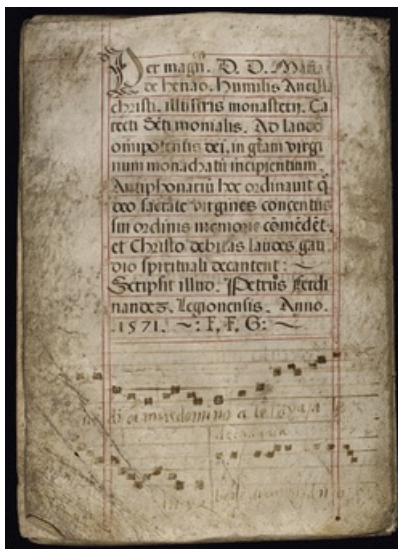 Per magñ. D. D. Maria
de henao. humilis Ancilla
christi. illustris monasterij. Ca
recti Sc̃ti monialis. Ad laudẽ
oĩnpotentis dei, in gr̃am virgi
num monachatũ incipientium.
Antiphonariũ hoc ordinauit q̃
deo sacrate virgines concentus
sui ordinis memorie cõmẽdẽt.
et Christo debitas laudes gau
dio spirituali decantent :~
Scripsit illud. Petrus Ferdi
nandez. Legionensis. Anno.
1571. ~: F. F. G: ~
camus domino a le